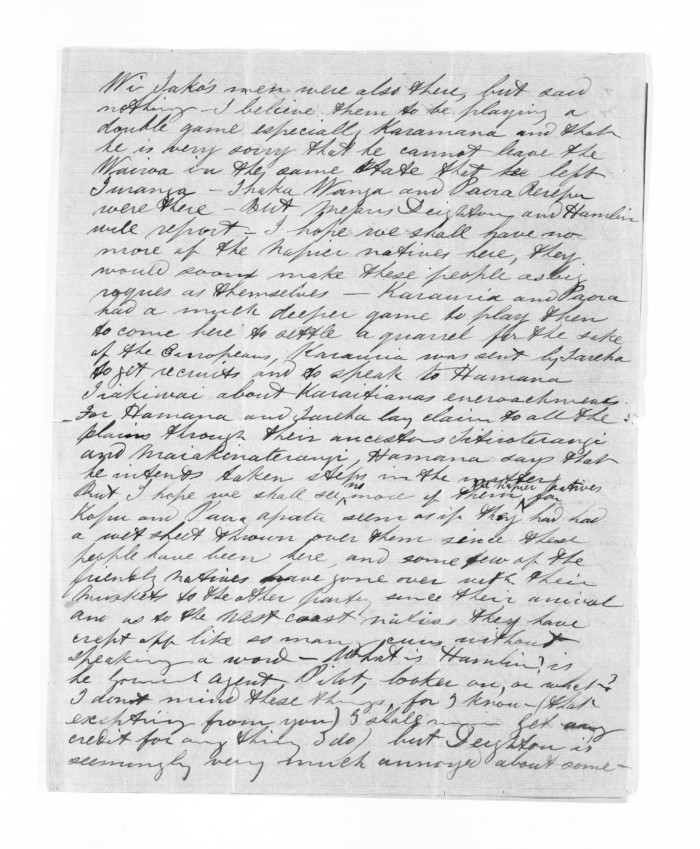 Wi Tako's men were also there, but said
nothing - I believe them to be playing a
double game especially Karamana and that
he is very sorry that he cannot leave the
Wairoa in the same state that he left
Turanga - Ihaka Wanga and Paora Rerepu
were there - But Means Deighton and Hamlin
will report - I hope we shall have no
more of the Napier natives here, they
would soon make these people as big
rogues as themselves - Karauria and Paora
had a much deeper game to play then
to come here to settle a quarrel for the sake
of the Europeans, Karauria was sent by Tareha
to get recruits and to speak to Hamana
Tiakiwai about Karaitianas encroachments.
For Hamana and Tareha lay claim to all the
plains through their ancestors
and Hamana says that
he intends taken steps in the matter
But I hope we shall see no more of them the napier natives for
Kopu and Paora apatu seem as if they had had
a wet sheet thrown over them since these
people have been here, and some few of the
friendly natives have gone over with their
muskets to the other party since their arrival
and as to the West coast natives they have
crept off like so many curs without
speaking a word - What is Hamlin? is
he Agent Pilot, looker on, or what?
I don't mind these things, for I know (that
excepting from you) I shall never get any
credit for any thing I do) but Deighton is
seemingly very much annoyed about some-